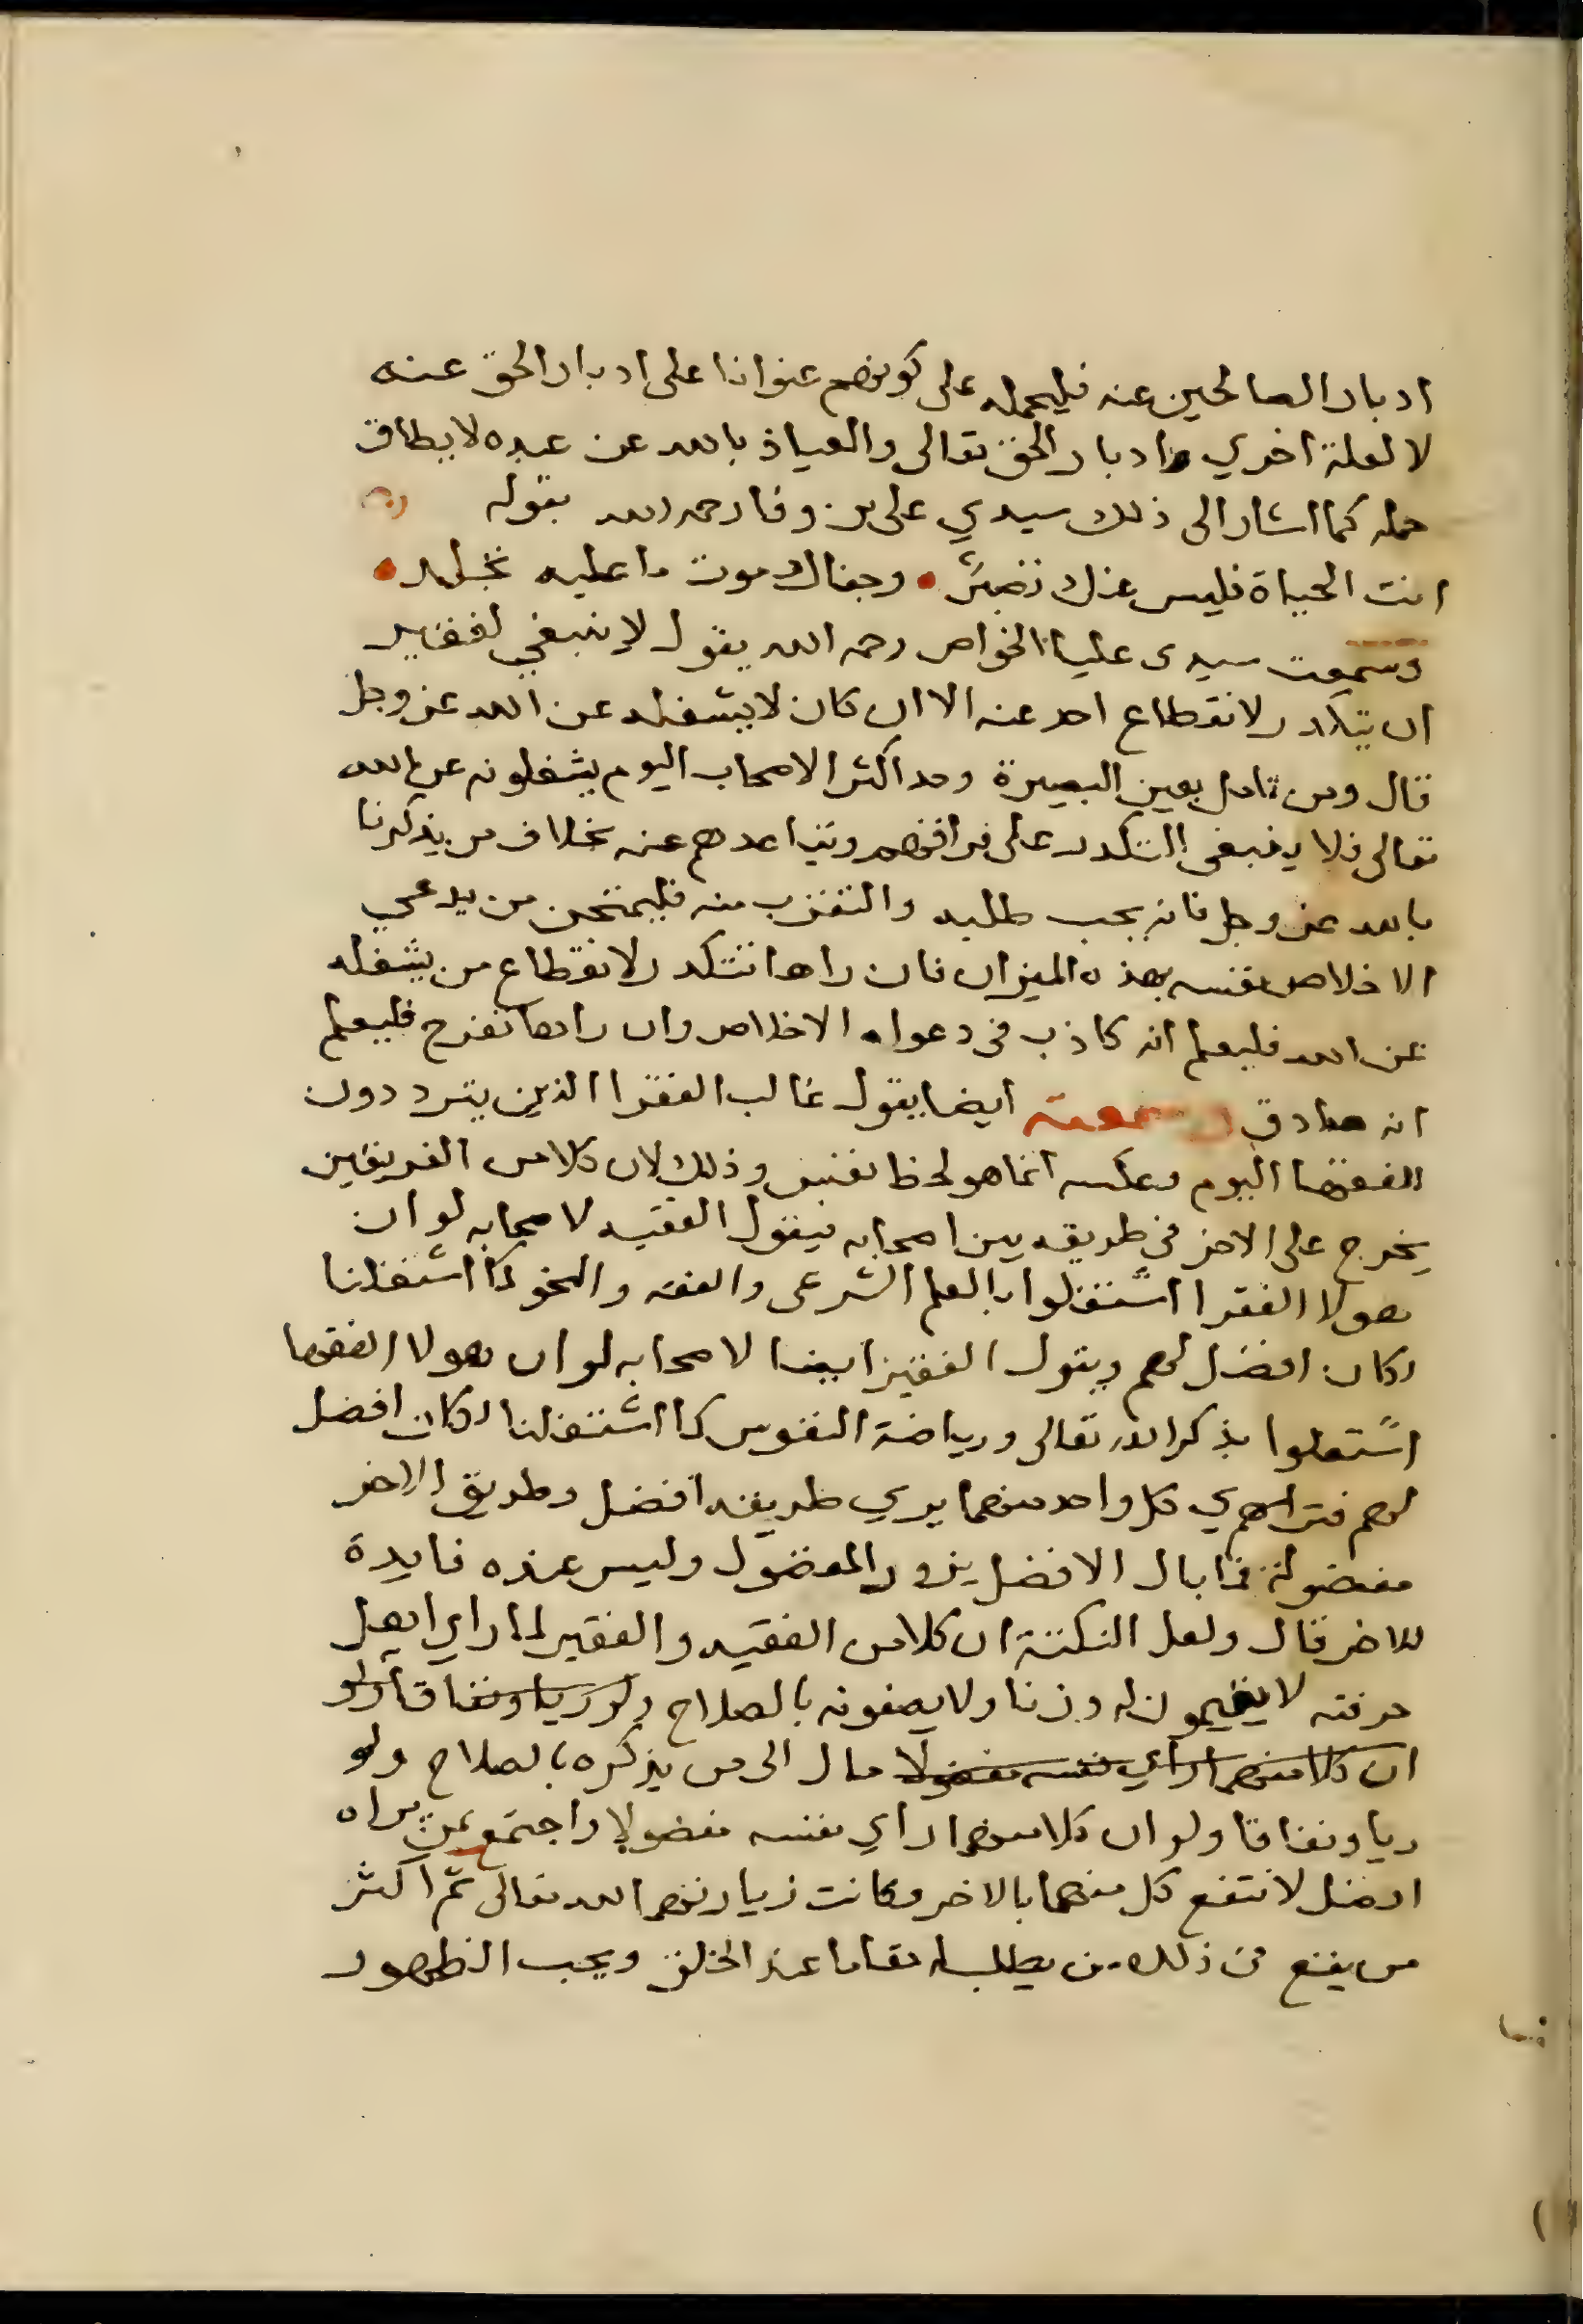 ادبار الصالحين عنه فليحمله على كونهم عنوانا على ادبار الحق عنه
لا لعلة اخري وادبار الحق تعالى والعياذ بالله عن عبده لا يطاق
حمله كما اشار الى ذلك سيدي على بن وفا رحمه الله بقوله
انت الحياة فليس عنك تصبر • وجفاك موت ما عليه تجلد •
وسمعت سيدى عليا الخواص رحمه الله يقول لا ينبغي لفقير
ان يتكدر لانقطاع احد عنه الا ان كان لا يشغله عن الله عز وجل
قال ومن تامل بعين البصيرة وجد اكثر الاصحاب اليوم يشغلونه عن الله
تعالى فلا ينبغى التكدر على فراقهم وتباعدهم عنه بخلاف من يذكرنا
بالله عز وجل فانه يجب طلبه والتقرب منه فليمتحن من يدعي
الاخلاص نفسه بهذه الميزان فان راها تتكدر لانقطاع من يشغله
عن الله فليعلم انه كاذب فى دعواه الاخلاص وان راها تفرح فليعلم
انه صادق وسمعته ايضا يقول غالب الفقرا الذين يترددون
للفقها اليوم وعكسه انما هو لحظ نفس وذلك لان كلا من الفريقين
يخرج على الاخر فى طريقه بين اصحابه فيقول الفقيه لاصحابه لو ان
هولا الفقرا اشتغلوا بالعلم الشرعى والفقه والنحو كما اشتغلنا
لكان افضل لهم ويقول الفقير ايضا لاصحابه لو ان هولا الفقها
اشتغلوا بذكر الله تعالى ورياضة النفوس كما اشتغلنا لكان افضل
لهم فتراهم كل واحد منهما يري طريقه افضل وطريق الاخر
مفضولة فما بال الافضل يزور المفضول وليس عنده فايدة
للاخر قال ولعل النكتة ان كلا من الفقيه والفقير لما راي اهل
حرفته لا يقيمون له وزنا ولا يصفونه بالصلاح ولو ريا ونفاقا ولو
ان كلا منهما راي نفسه مفضولا مال الى من يذكره بالصلاح ولو
ريا ونفاقا ولو ان كلا منهما راي نفسه مفضولا واجتمع بمن يراه
افضل لانتفع كل منهما بالاخر وكانت زيارتهم لله تعالى ثم اكثر
من يقع فى ذلك من يطلب له مقاما عند الخلق ويحب الظهور